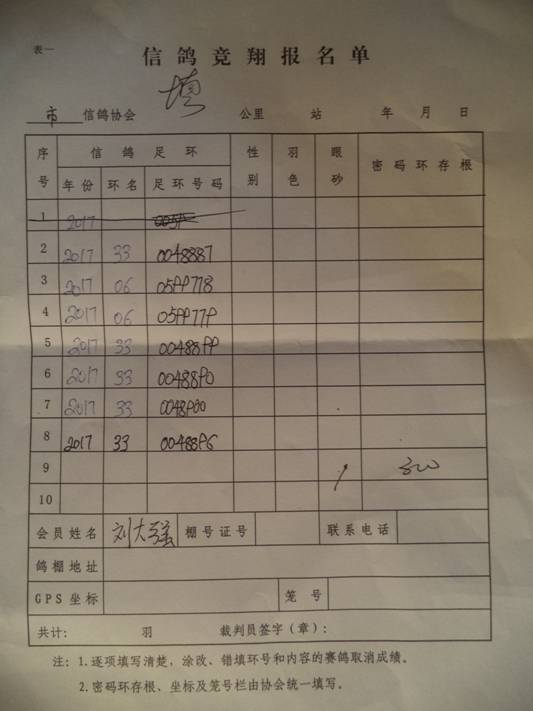 表一
信鸽竞翔报名单
填
市 信鸽协会 公里 站 年 月 日
序号 信鸽足环 性别 羽色 眼砂 密码环存根
年份 环名 足环号码
1 2017
2 2017 33 0048887
3 2017 06 0599778
4 2017 06 0599779
5 2017 33 0048899
6 2017 33 0048890
7 2017 33 0048900
8 2017 33 0048896
9
10
会员姓名 刘大强 棚号证号 联系电话
鸽棚地址
GPS坐标 笼号
共计: 羽 裁判员签字(章):
注:1.逐项填写清楚,涂改、错填环号和内容的赛鸽取消成绩。
2.密码环存根、坐标及笼号栏由协会统一填写。